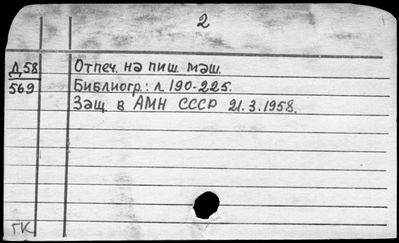 2
Д58 Отпеч. на пиш. маш.
569 Библиогр.: л. 190-225.
Защ. в АМН СССР 21.3.1958.
ГК